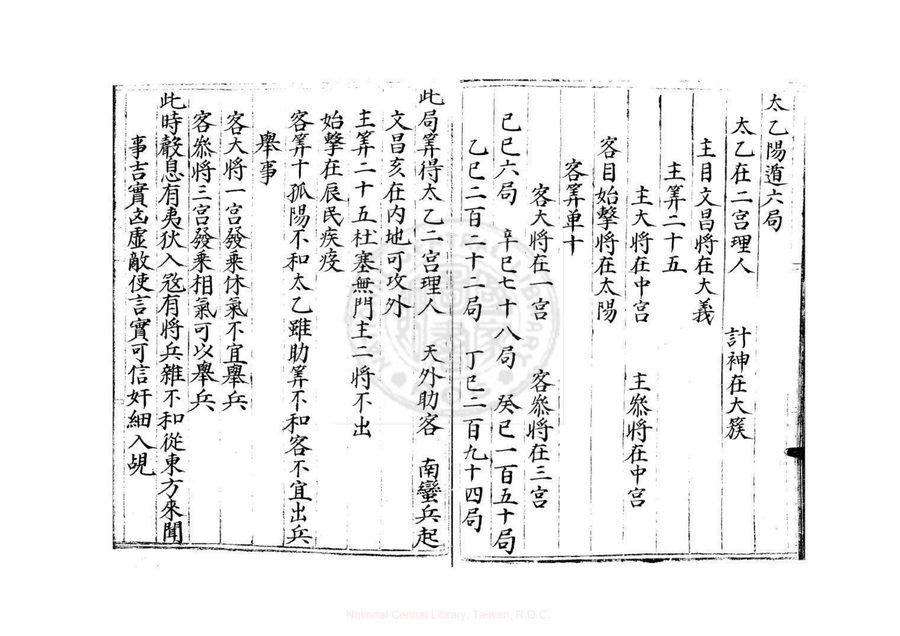 太乙陽遁六局
太乙在二宮理人　計神在大簇
主目文昌將在大義
主筭二十五
主大將在中宮　主叅將在中宮
客目始擊將在太陽
客筭單十
客大將在一宮　客叅將在三宮
己巳六局　辛巳七十八局　癸巳一百五十局
乙巳二百二十二局　丁巳二百九十四局
此局筭得太乙二宮理人　天外助客　南蠻兵起
文昌亥在内地可攻外
主筭二十五杜塞無門主二將不出
始擊在辰民疾疫
客筭十孤陽不和太乙雖助筭不和客不宜出兵
舉事
客大將一宮發乘休氣不宜舉兵
客叅將三宮發乘相氣可以舉兵
此時殸息有夷狄入寇有將兵雜不和從東方來聞
事吉實凶虛敵使言實可信奸細入覘
National Central Library, Taiwan, R.O.C.